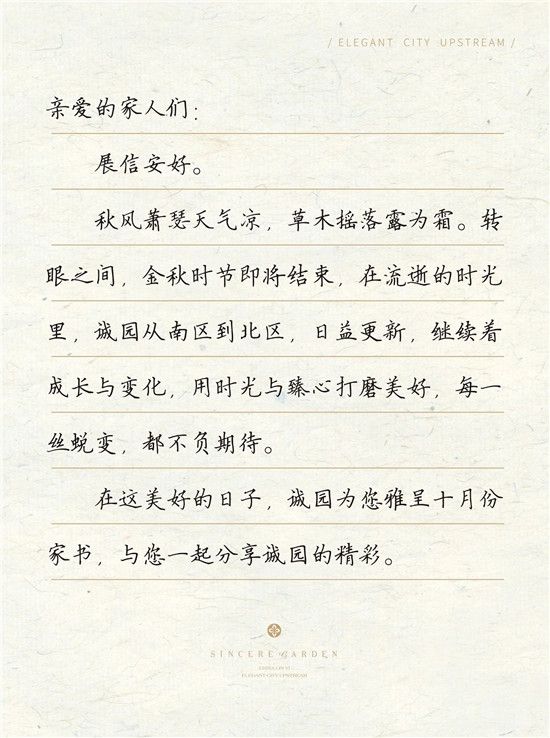 / ELEGANT CITY UPSTREAM /
亲爱的家人们：
展信安好。
秋风萧瑟天气凉，草木摇落露为霜。转
眼之间，金秋时节即将结束，在流逝的时光
里，诚园从南区到北区，日益更新，继续着
成长与变化，用时光与臻心打磨美好，每一
丝蜕变，都不负期待。
在这美好的日子，诚园为您雅呈十月份
家书，与您一起分享诚园的精彩。
SINCERE GARDEN
ELEGANT CITY UPSTREAM